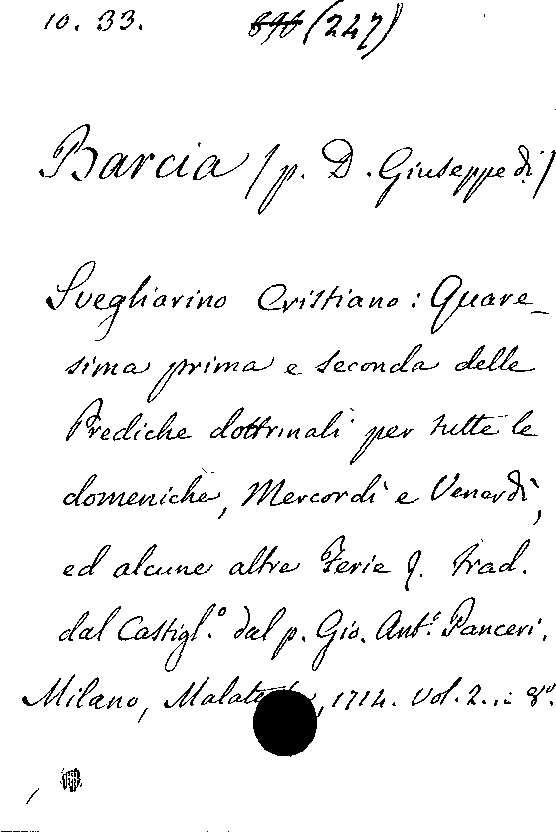 10. 33. 896 (247)
Barcia (p. D. Giuseppe di)
Svegliarino Cristiano: Quare-
sima prima e seconda delle
Prediche dottrinali per tutte le
domeniche, Mercordì e Venerdì,
ed alcune altre Ferie &. trad.
dal Castigl.º dal p. Gio. Antº. Panceri.
Milano, Malate , 1714. Vol. 2. in 8º.